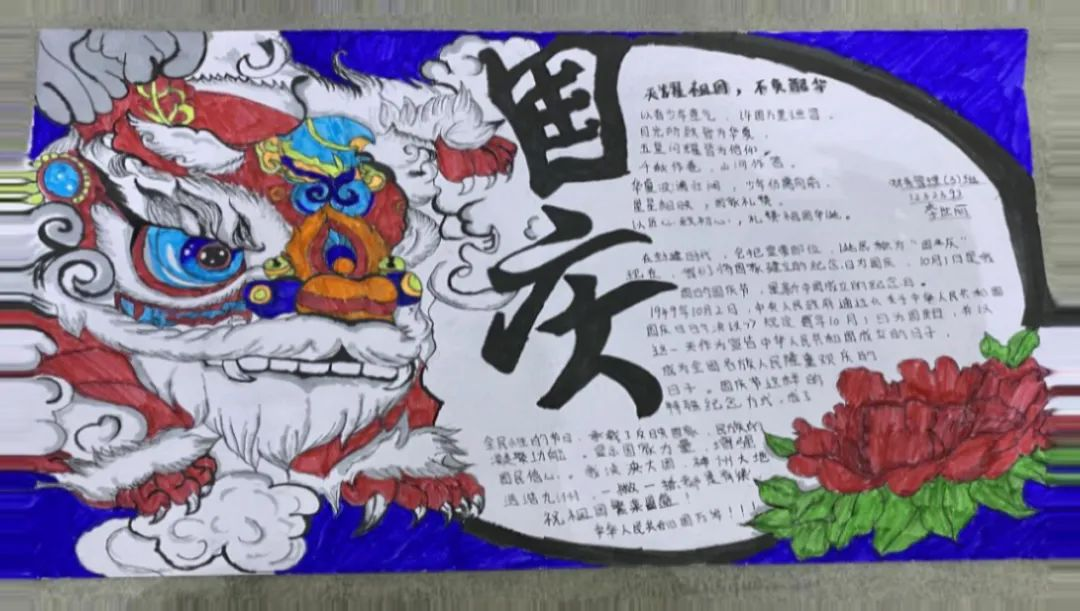 国庆
祖国，不负韶华
以吾少年意气，
目光所致皆为华夏，
五星闪耀皆为信仰。
千秋作卷，山河作答。
华夏波涛壮阔，少年仍需向前。
以匠心致初心，礼赞祖国华诞。
财务管理(3)班
在封建时代，
现在，我们将国家建立的纪念日为国庆，10月1日是我
国的国庆节，是新中国成立的纪念日。
1949年10月2日，中央人民政府通过《关于中华人民共和国
国庆日的决议》，规定每年10月1日为国庆日，并以
这一天作为宣告中华人民共和国成立的日子，
成为全国各族人民隆重欢庆的
日子。国庆节这样的
特殊纪念方式，成了
全民性的节日，承载了反映国家、民族的
凝聚功能。显示国家力量，增强
国民信心。我泱泱大国，神州大地
祝祖国繁荣昌盛！
中华人民共和国万岁！！！